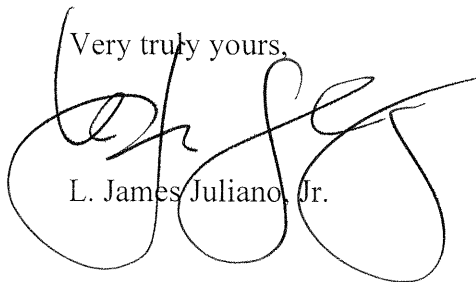 Very truly yours,
L. James Juliano, Jr.